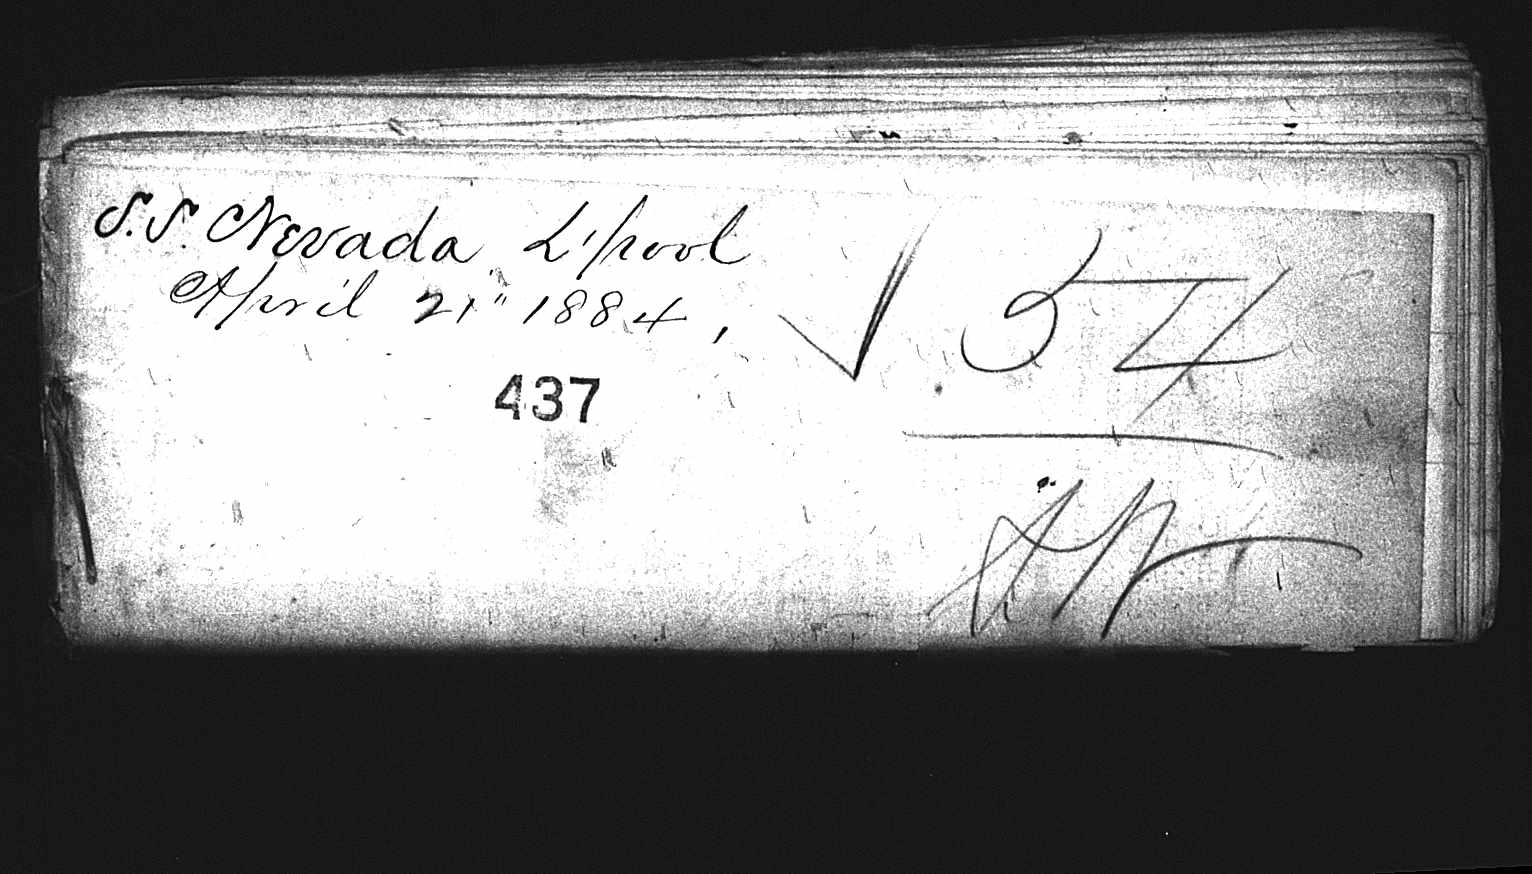 S.S. Nevada L'pool
April 21" 1884,
437
54